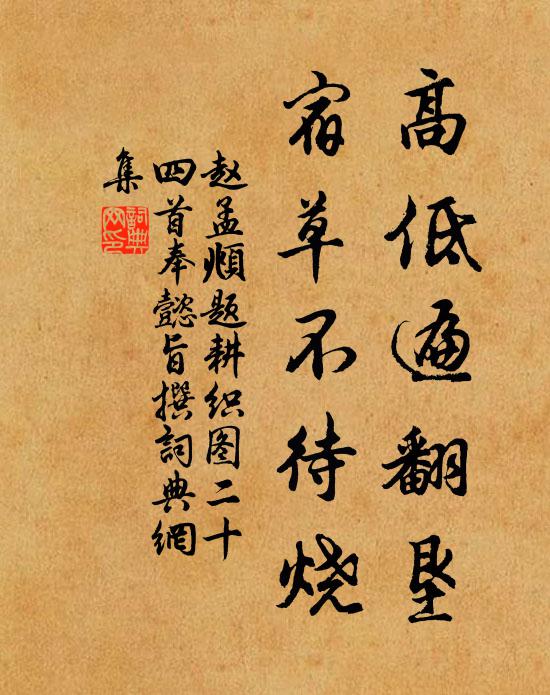 高低遍翻垦
宿草不待烧
赵孟頫题耕织图二十
四首奉懿旨撰詞典網
集
詞典
网印